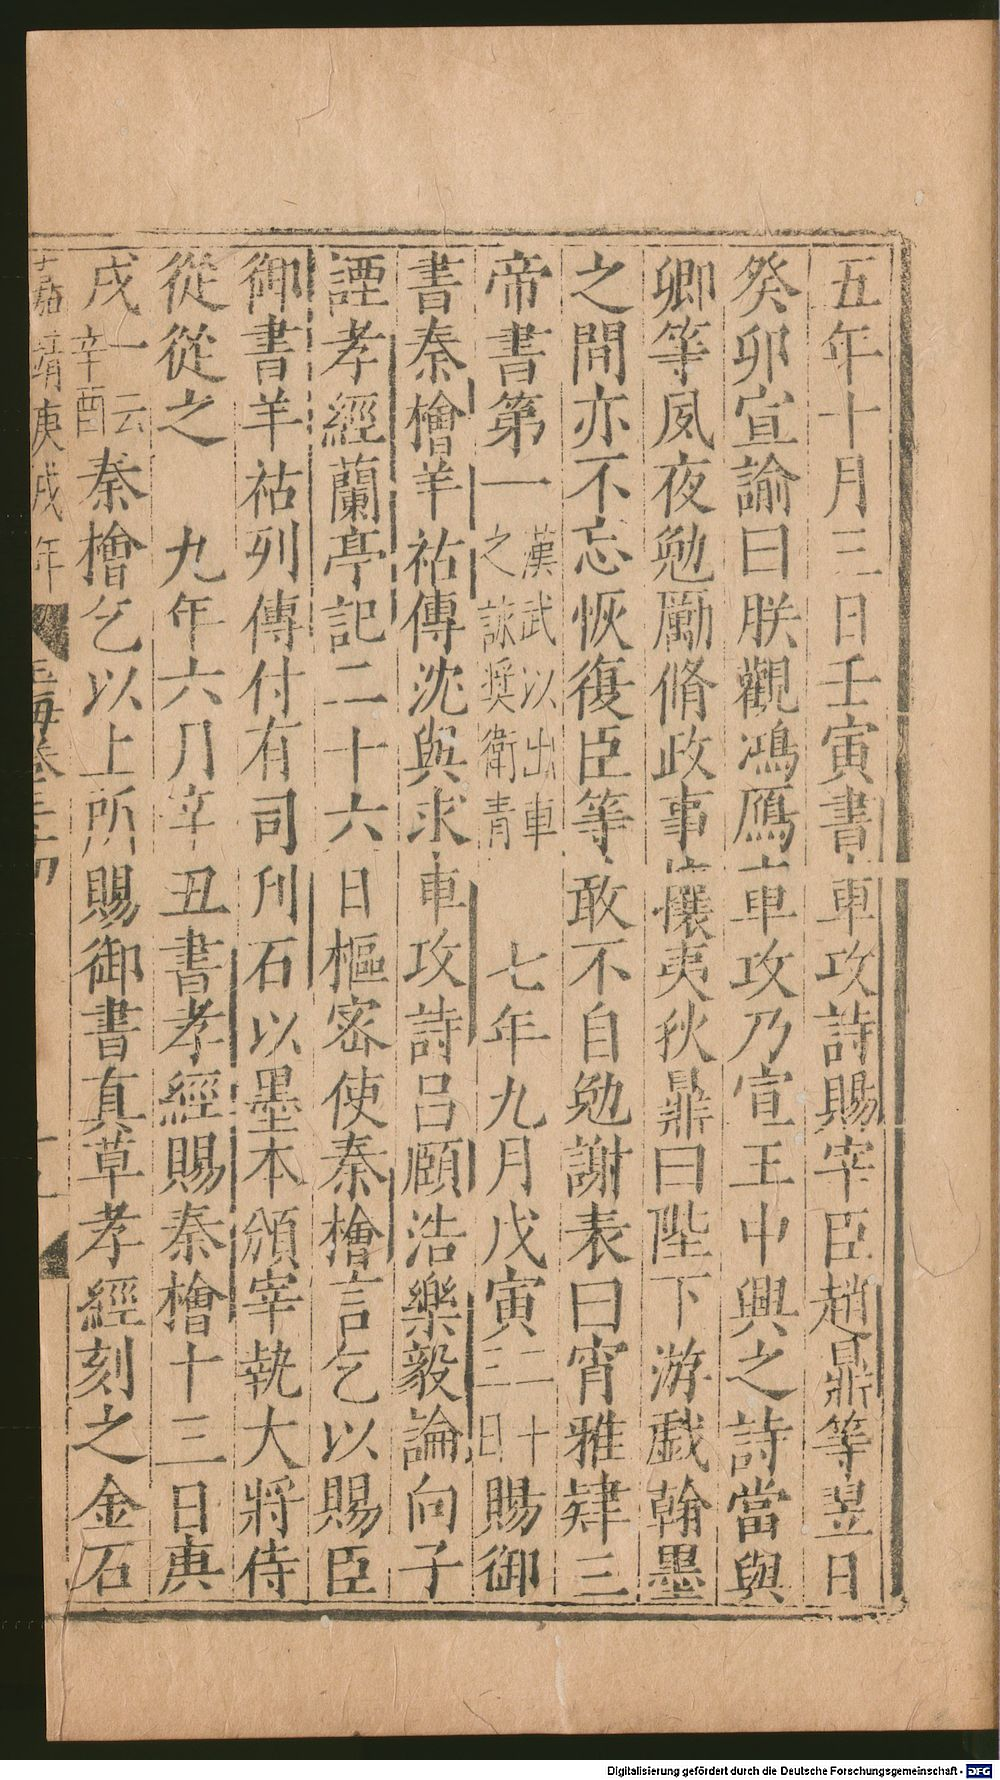 五年十月三日壬寅書車攻詩賜宰臣趙鼎等翌日
癸卯宣諭曰朕觀鴻鴈車攻乃宣王中興之詩當與
卿等夙夜勉勵脩政事攘夷狄鼎曰陛下游戲翰墨
之間亦不忘恢復臣等敢不自勉謝表曰宵雅肄三
帝書第一漢武以出車之詠奬衛青　七年九月戊寅二十三日賜御
書秦檜羊祜傳沈與求車攻詩呂頤浩樂毅論向子
諲孝經蘭亭記二十六日樞密使秦檜言乞以賜臣
御書羊祜列傳付有司刋石以墨本頒宰執大將侍
從從之　九年六月辛丑書孝經賜秦檜十三日庚
戌一云辛酉秦檜乞以上所賜御書真草孝經刻之金石
嘉靖庚戌年 玉海卷三十四
Digitalisierung gefördert durch die Deutsche Forschungsgemeinschaft - DFG